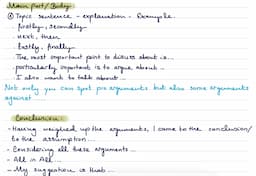 Main part / Body:
④ Topic sentence - explanation - Example
- firstly, secondly
- next, then
- lastly, finally
- The most important point to discuss about is...
- particularly important is to argue about...
- I also want to talk about...
Not only you can spot pro arguments but also some arguments
against...
Conclusion:
- Having weighed up the arguments, I come to the conclusion/
to the assumption...
- Considering all these arguments...
- All in All...
- My suggestion is that...